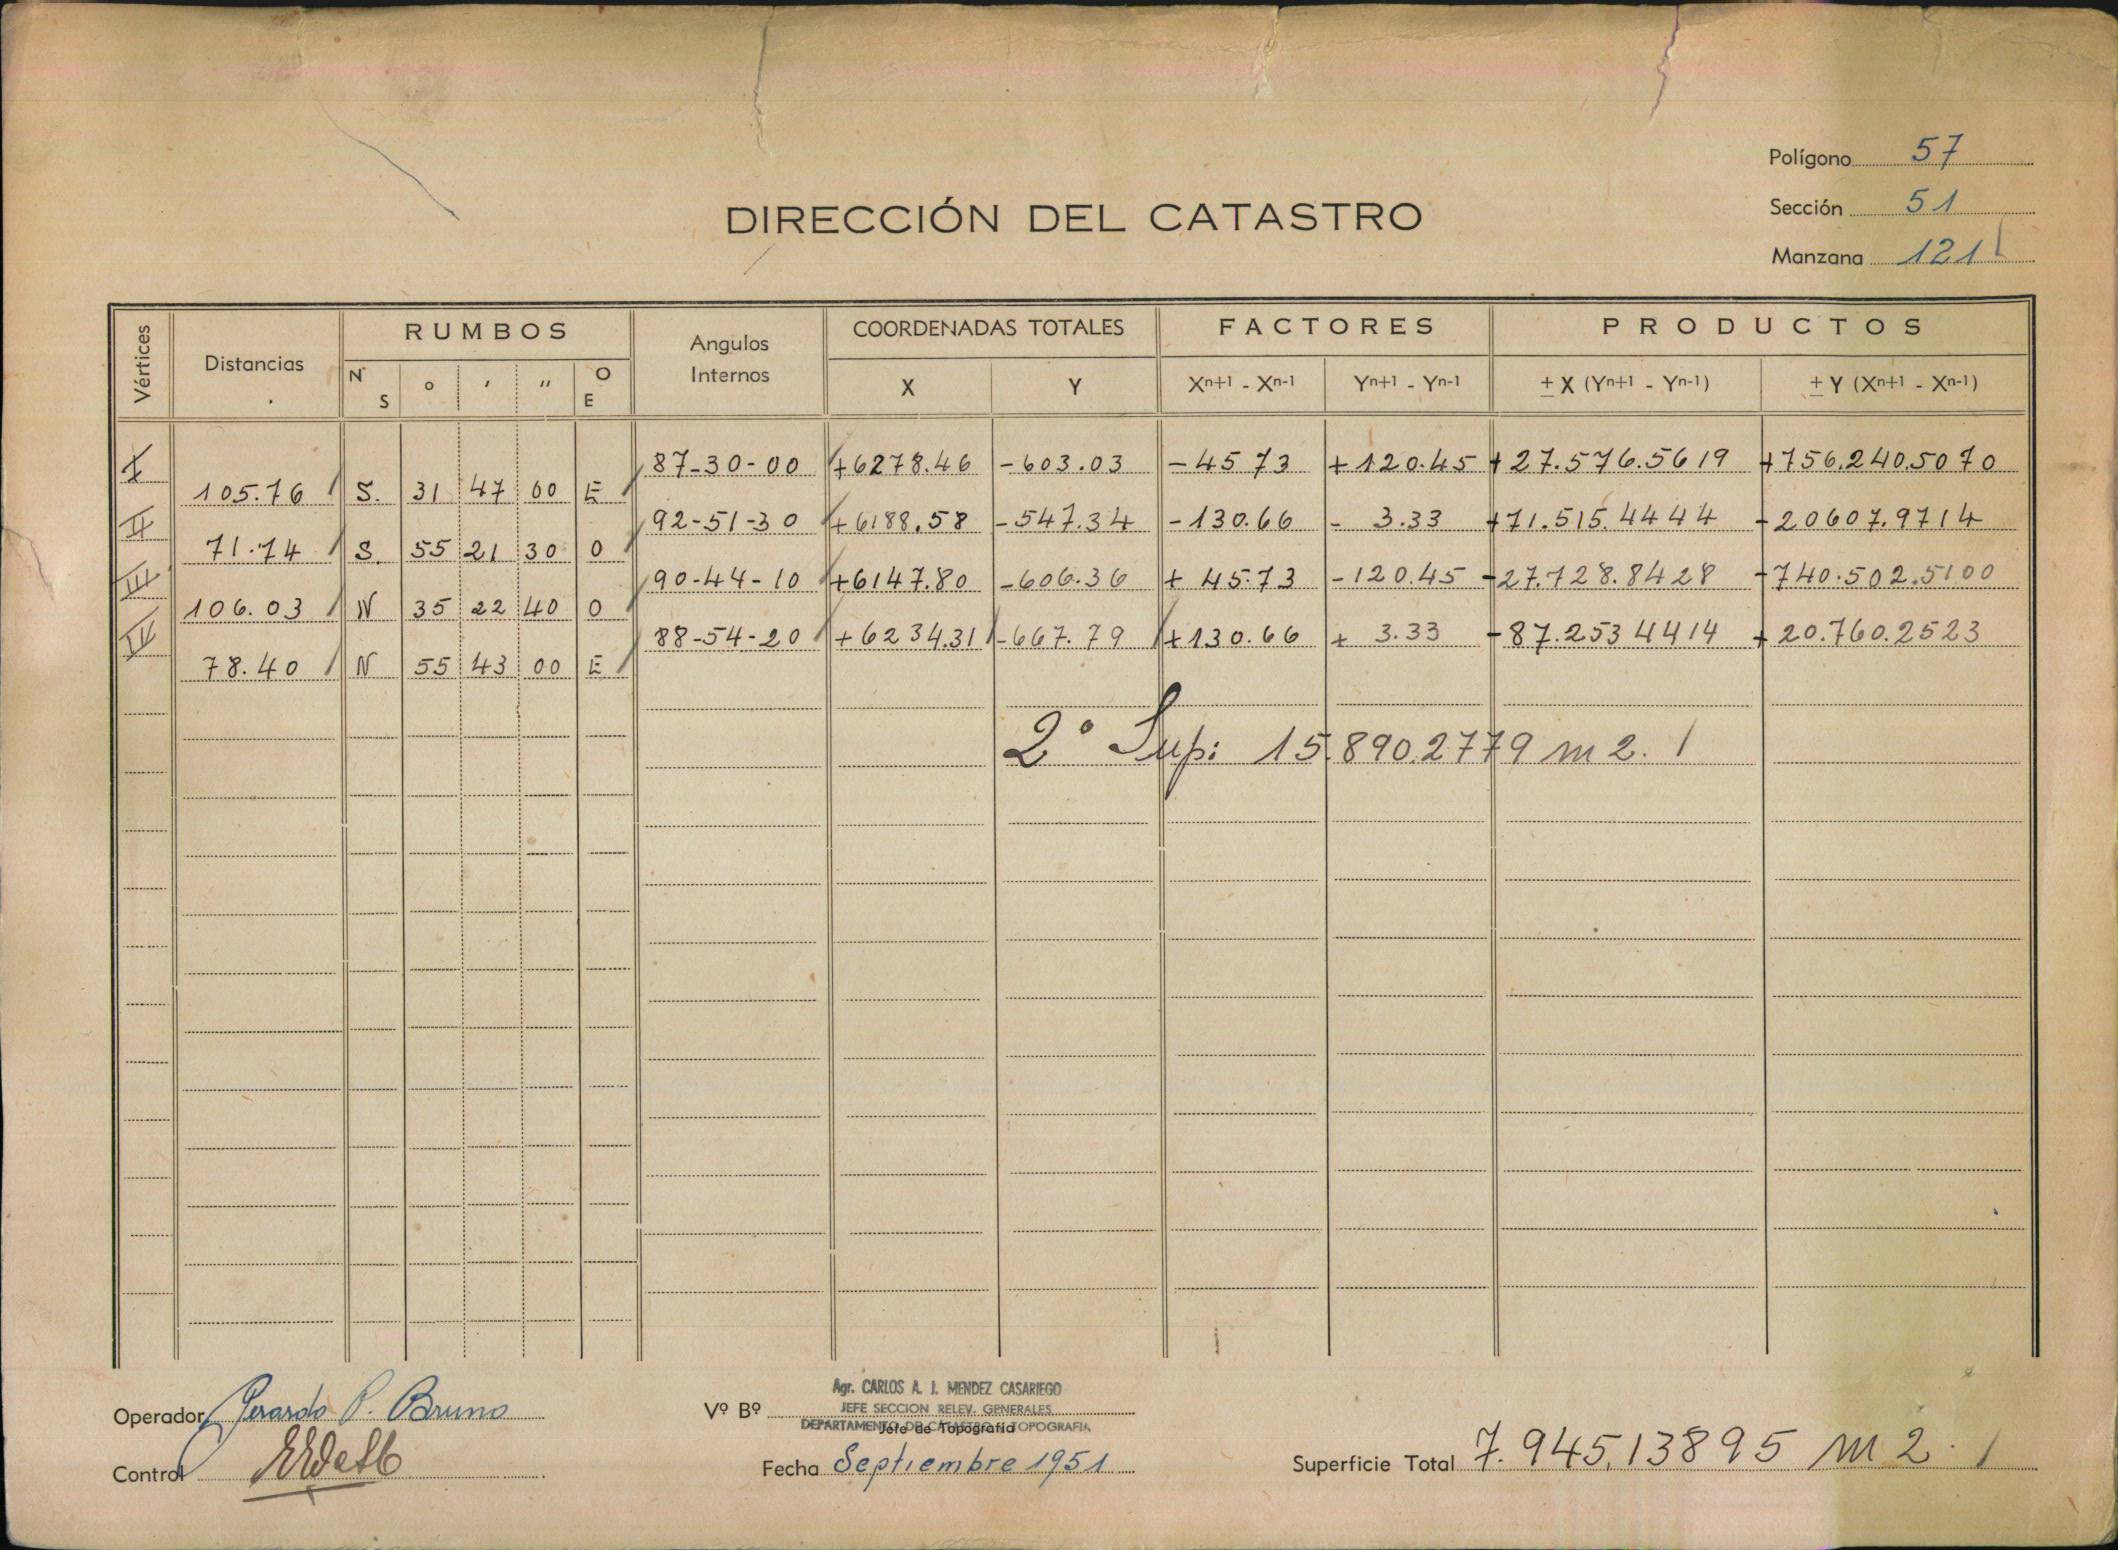 Polígono 57
Sección 51
Manzana 121
DIRECCIÓN DEL CATASTRO
Vértices Distancias RUMBOS Angulos Internos COORDENADAS TOTALES FACTORES PRODUCTOS
N S ° ' '' O E X Y Xn+1 - Xn-1 Yn+1 - Yn-1 ± X (Yn+1 - Yn-1) ± Y (Xn+1 - Xn-1)
I 87-30-00 +6278.46 -603.03 -45 73 +120.45 +27.576.5619 +756.240.5070
105.76 S. 31 47 00 E
II 92-51-30 +6188.58 -547.34 -130.66 - 3.33 +71.515.4444 -20607.9714
71.74 S. 55 21 30 O
III 90-44-10 +6147.80 -606.36 + 45.73 -120.45 -27.728.8428 -740.502.5100
106.03 N 35 22 40 O
IV 88-54-20 +6234.31 -667.79 +130.66 + 3.33 -87.253 4414 +20.760.2523
78.40 N 55 43 00 E
2° Sup: 15.890.2779 m2.
Operador Gerardo P. Bruno
Control
Vº Bº
Agr. CARLOS A. J. MENDEZ CASARIEGO
JEFE SECCION RELEV. GENERALES
DEPARTAMENTO DE CATASTRO Y TOPOGRAFIA
Jefe de Topografía
Fecha Septiembre 1951
Superficie Total 7.945,13895 m2.